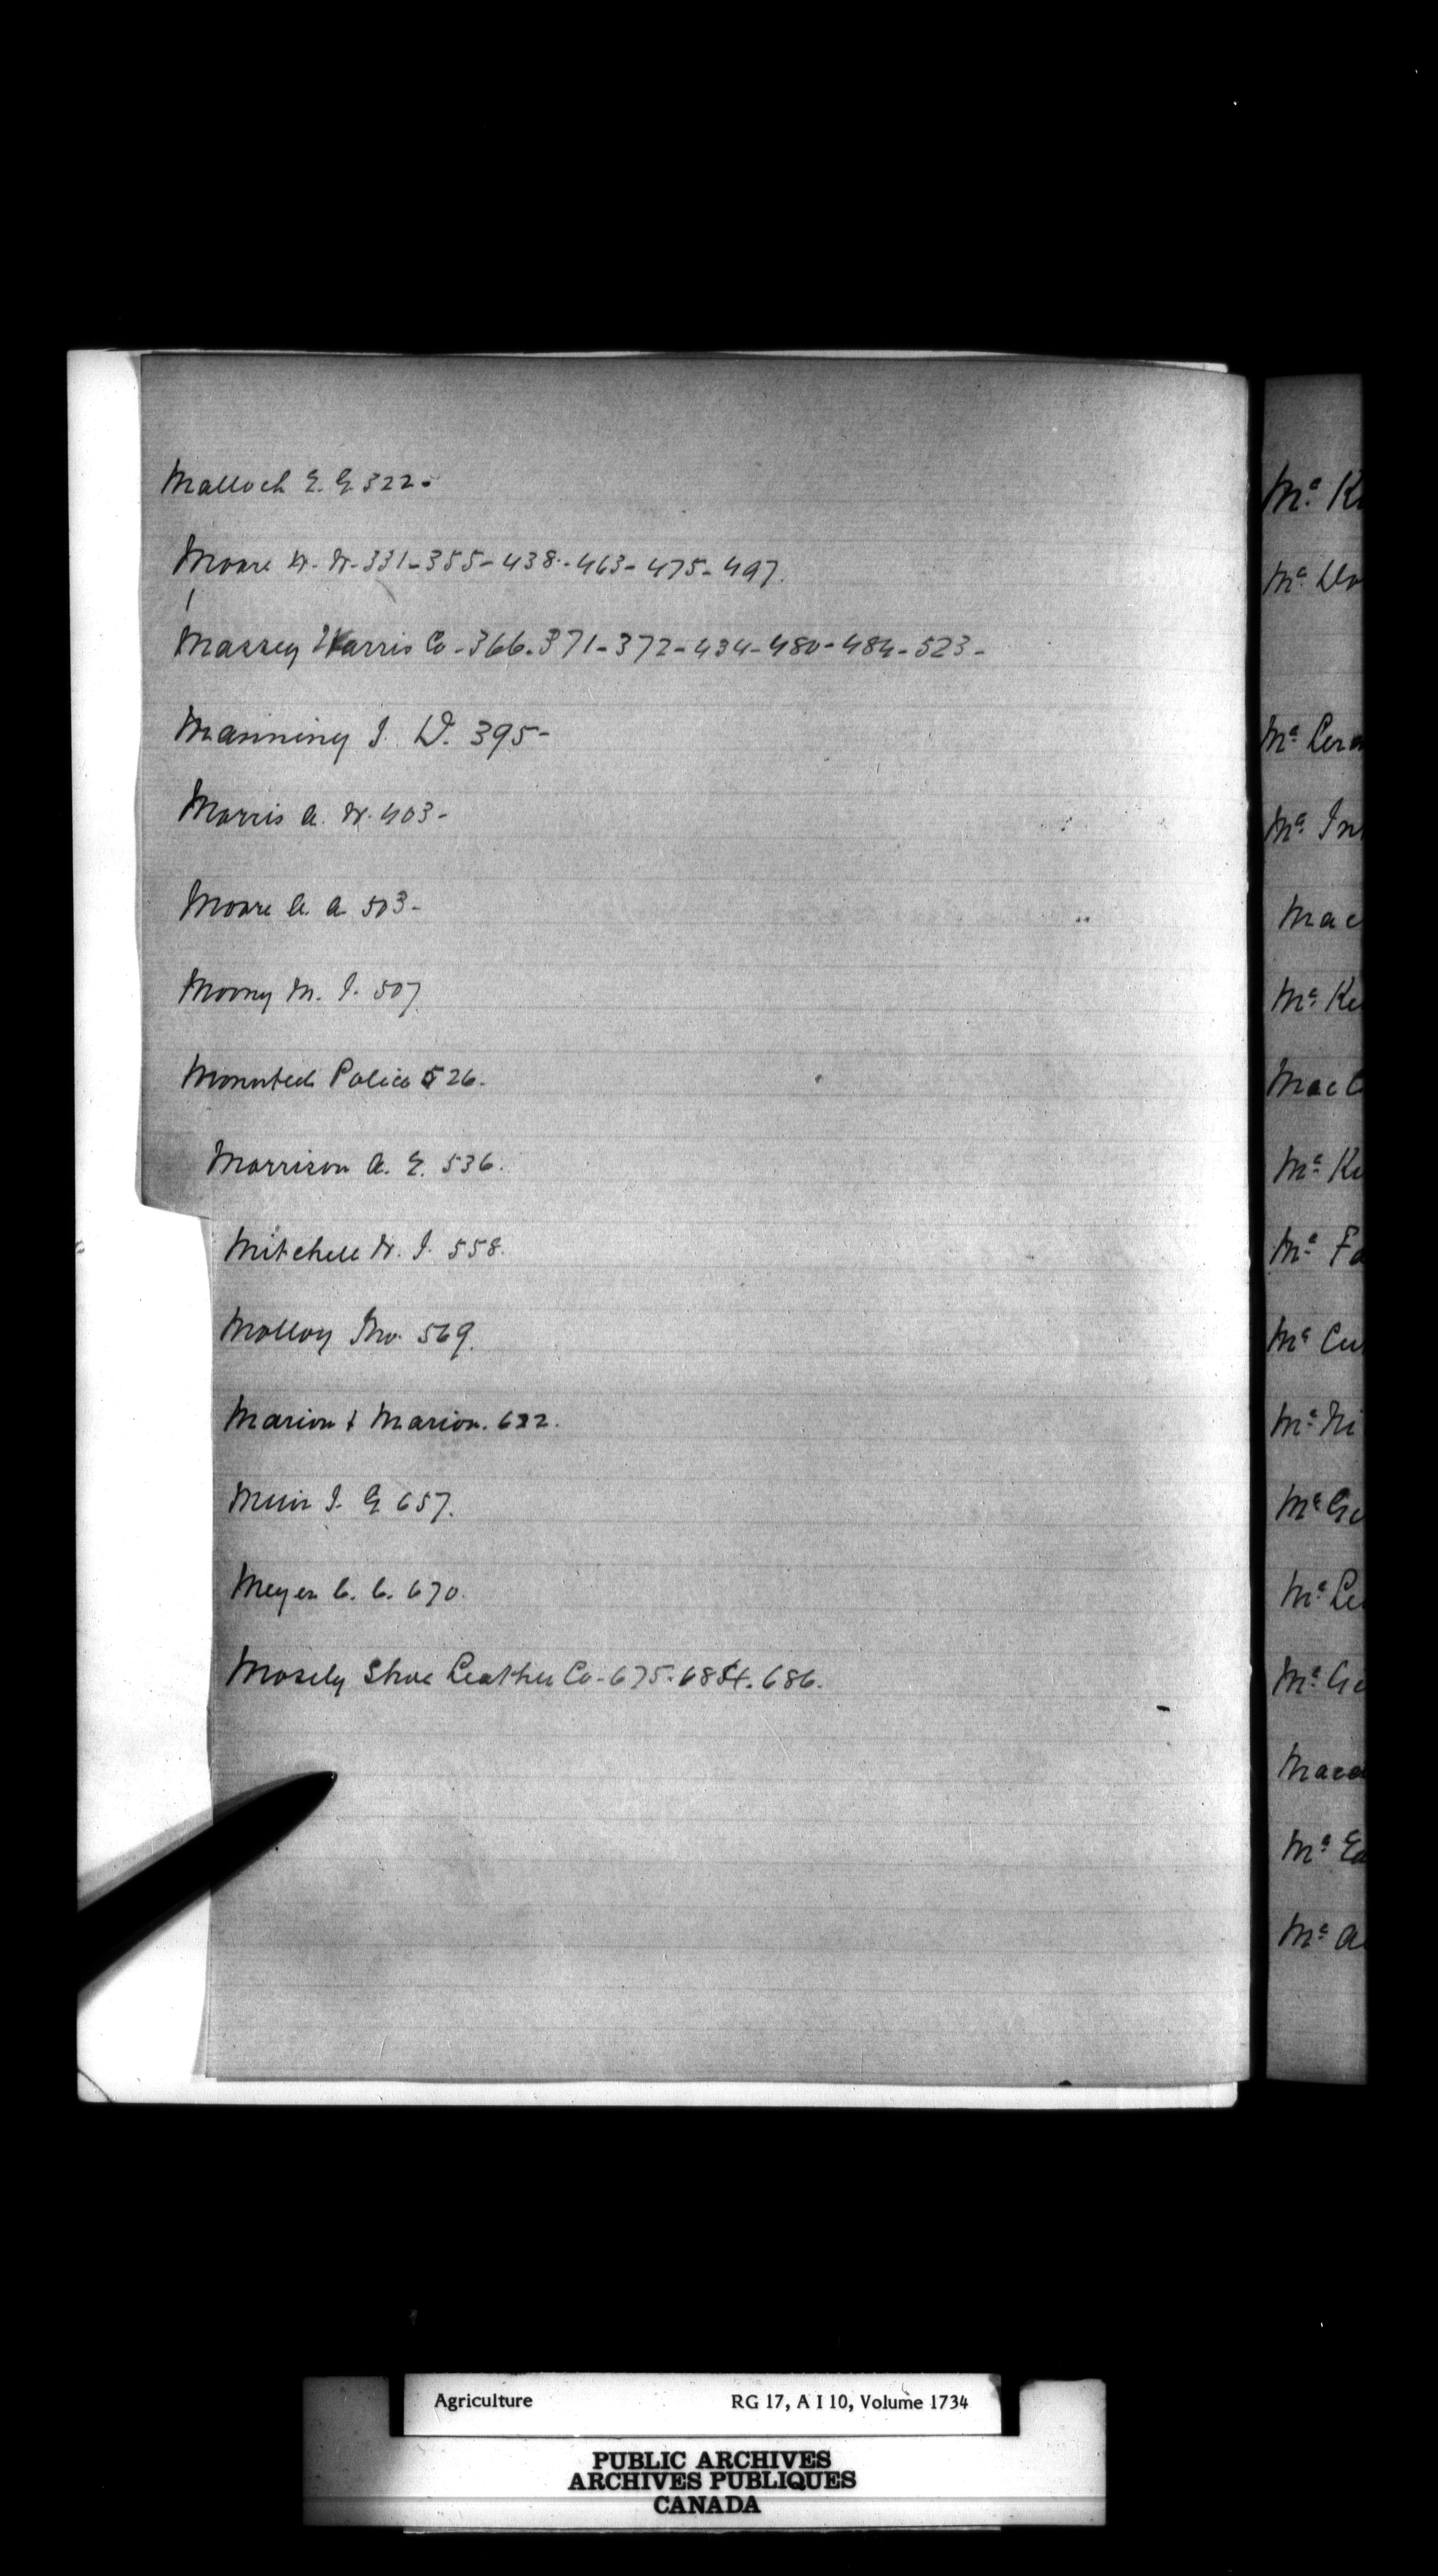 Malloch E. G 322-
Moore W. W-331-355-438-463-475-497.
Massey Harris Co-366-371-372-434-480-484-523-
Manning J. D. 395-
Morris A. W. 403-
Moore A. A 503-
Moony M. J. 507
Mounted Police 526.
Morrison A. E. 536.
Mitchell W. J. 558.
Molloy Jno. 569.
Marion & Marion. 622.
Muir J. G 657.
Meyer C. C. 670.
Mosely Shoe Leather Co-675-684-686.
Mc K
Mc
Mc
Mc In
Mac
Mc Ke
Mac
Mc Ke
Mc Fa
Mc Cu
Mc Ni
Mc
Mc Le
Mc
Mc
Mc A
Agriculture RG 17, A I 10, Volume 1734
PUBLIC ARCHIVES
ARCHIVES PUBLIQUES
CANADA